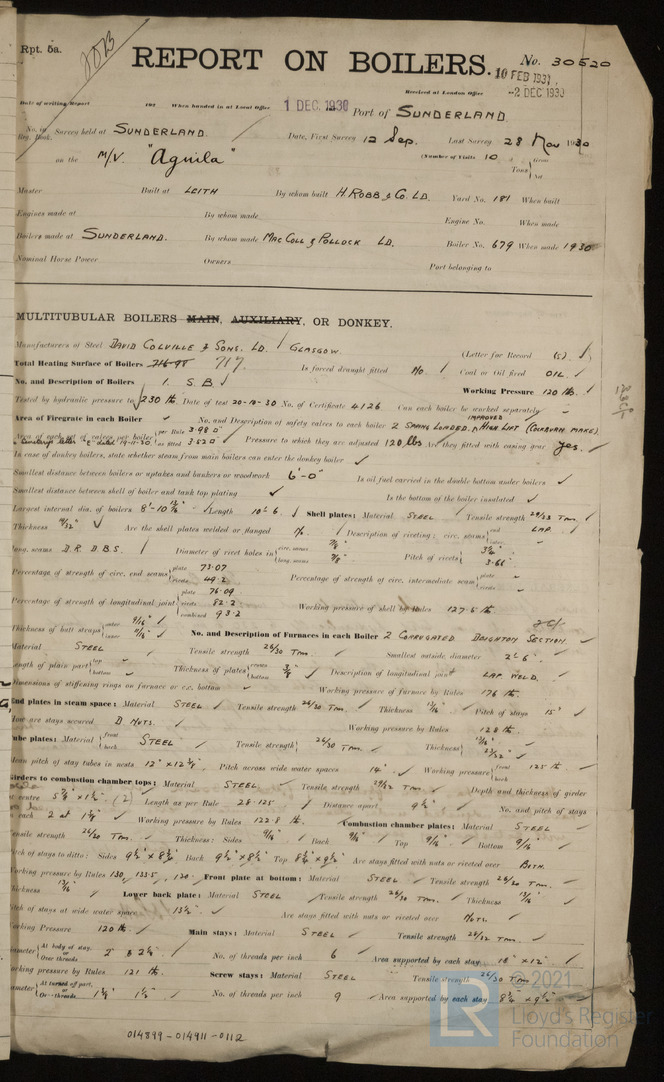 Rpt. 5a.
REPORT ON BOILERS.
No. 30520
10 FEB 1931
Received at London Office
-2 DEC 1930
Date of writing Report 192 When handed in at Local Office 1 DEC. 1930 Port of SUNDERLAND
No. in Reg. Book. Survey held at SUNDERLAND Date, First Survey 12 Sep. Last Survey 28 Nov 1930
on the M/V. "Aguila" (Number of Visits 10 Tons
Master Built at LEITH By whom built H. ROBB & CO. LD. Yard No. 181 When built
Engines made at By whom made Engine No. When made
Boilers made at SUNDERLAND. By whom made MACCOLL & POLLOCK LD. Boiler No. 679 When made 1930
Nominal Horse Power Owners Port belonging to
MULTITUBULAR BOILERS MAIN, AUXILIARY, OR DONKEY.
Manufacturers of Steel DAVID COLVILLE & SONS. LD. GLASGOW. (Letter for Record (S).
Total Heating Surface of Boilers 717 Is forced draught fitted NO. Coal or Oil fired OIL.
No. and Description of Boilers 1. S.B. Working Pressure 120 lb.
Tested by hydraulic pressure to 230 lb. Date of test 20-10-30 No. of Certificate 4126 Can each boiler be worked separately
Area of Firegrate in each Boiler No. and Description of safety valves to each boiler 2 SPRING LOADED IMPROVED HIGH LIFT (COCKBURN MAKE)
Area of each set of valves per boiler per Rule 3.98 as fitted 3.820 Pressure to which they are adjusted 120 lbs Are they fitted with easing gear yes.
In case of donkey boilers, state whether steam from main boilers can enter the donkey boiler
Smallest distance between boilers or uptakes and bunkers or woodwork 6'-0" Is oil fuel carried in the double bottom under boilers
Smallest distance between shell of boiler and tank top plating Is the bottom of the boiler insulated
Largest internal dia. of boilers Length 10' 6 Shell plates: Material STEEL Tensile strength 29/33 Tns.
Thickness Are the shell plates welded or flanged NO. Description of riveting: circ. seams end LAP.
long. seams D.R. D.B.S. Diameter of rivet holes in circ. seams 7/8 long. seams 7/8 Pitch of rivets 3 1/4 3.66
Percentage of strength of circ. end seams plate 73.07 rivets 49.2 Percentage of strength of circ. intermediate seam plate rivets
Percentage of strength of longitudinal joint plate 76.09 rivets 82.2 combined 93.2 Working pressure of shell by Rules 127.6 lb
Thickness of butt straps outer 9/16 inner 9/16 No. and Description of Furnaces in each Boiler 2 CORRUGATED DEIGHTON SECTION.
Material STEEL Tensile strength 26/30 Tns. Smallest outside diameter 2' 6"
Length of plain part top bottom Thickness of plates crown bottom 3/8 Description of longitudinal joint LAP WELD.
Dimensions of stiffening rings on furnace or c.c. bottom Working pressure of furnace by Rules 176 lb
End plates in steam space: Material STEEL Tensile strength 26/30 Tns. Thickness Pitch of stays 15"
How are stays secured D NUTS. Working pressure by Rules 128 lb
Tube plates: Material front back STEEL Tensile strength 26/30 Tns. Thickness 23/32
Mean pitch of stay tubes in nests Pitch across wide water spaces 14" Working pressure front back 125 lb
Girders to combustion chamber tops: Material STEEL Tensile strength 29/32 Tns. Depth and thickness of girder
at centre (2) Length as per Rule 28.125 Distance apart No. and pitch of stays
in each 2 at Working pressure by Rules 122.8 lb Combustion chamber plates: Material STEEL
Tensile strength 26/30 Tns. Thickness: Sides 9/16 Back 9/16 Top 9/16 Bottom 9/16
Pitch of stays to ditto: Sides Back Top Are stays fitted with nuts or riveted over BOTH.
Working pressure by Rules 130, 133.5, 120 Front plate at bottom: Material STEEL Tensile strength 26/30 Tns.
Thickness 13/16 Lower back plate: Material STEEL Tensile strength 26/30 Tns. Thickness 13/16
Pitch of stays at wide water space Are stays fitted with nuts or riveted over NUTS.
Working Pressure 120 lb Main stays: Material STEEL Tensile strength 28/32 Tns.
Diameter At body of stay, or Over threads 2" & 2 1/4" No. of threads per inch 6 Area supported by each stay 18" x 12"
Working pressure by Rules 121 lb Screw stays: Material STEEL Tensile strength 26/30 Tns.
Diameter At turned off part, or Over threads No. of threads per inch 9 Area supported by each stay
014899-014911-0112
© 2021
LR
Lloyd's Register
Foundation